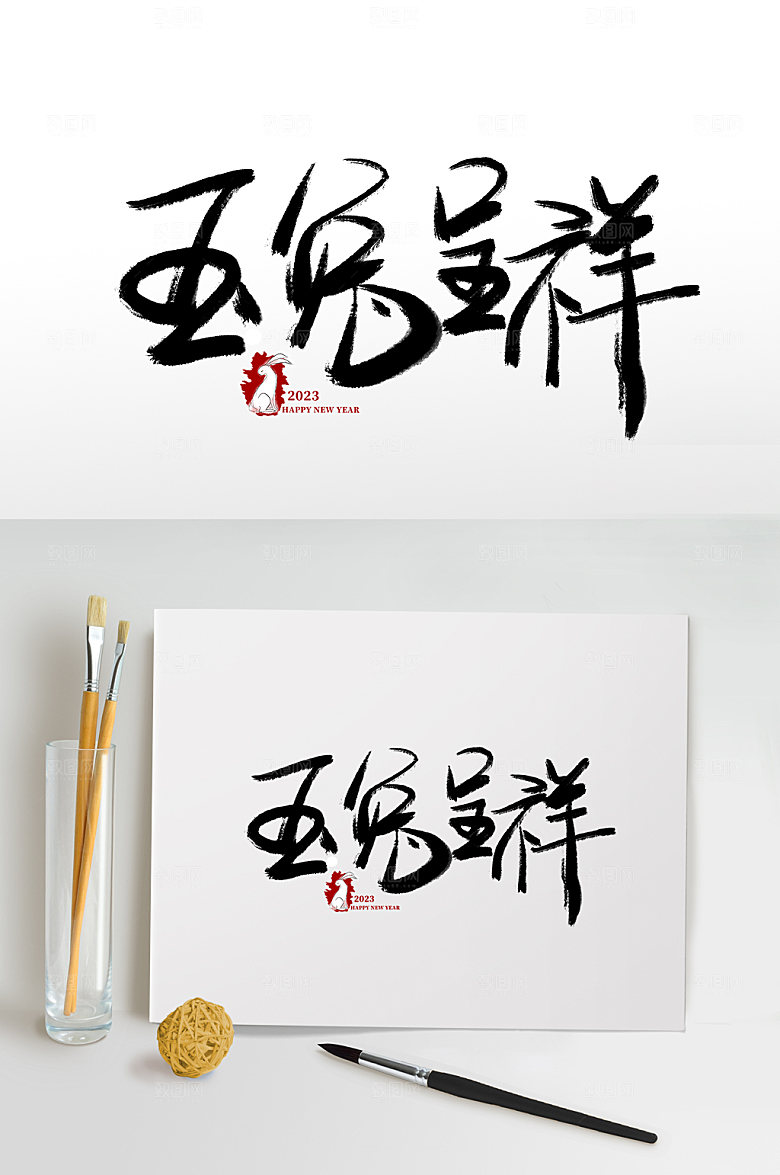 玉兔呈祥
2023
HAPPY NEW YEAR
玉兔呈祥
2023
HAPPY NEW YEAR